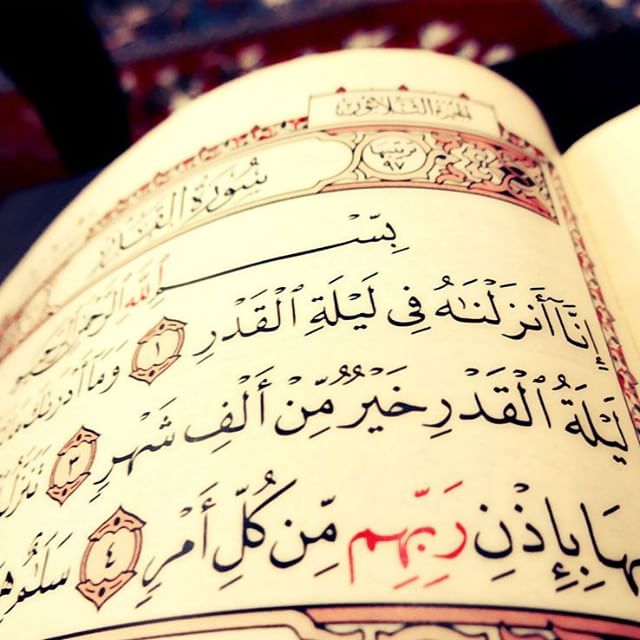 الجزء الثلاثون
سورة القدر
مرتبتها ٩٧
بِسْمِ ٱللَّهِ ٱلرَّحْمَٰنِ ٱلرَّحِيمِ
إِنَّآ أَنزَلْنَٰهُ فِى لَيْلَةِ ٱلْقَدْرِ ١ وَمَآ أَدْرَىٰكَ
لَيْلَةُ ٱلْقَدْرِ خَيْرٌ مِّنْ أَلْفِ شَهْرٍ ٣ تَنَزَّلُ
بِإِذْنِ رَبِّهِم مِّن كُلِّ أَمْرٍ ٤ سَلَٰمٌ